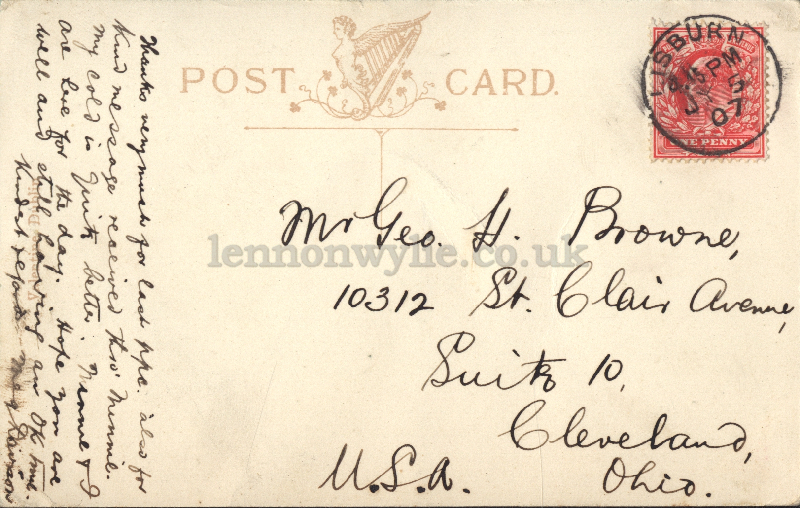 Thanks very much for last ppc. also for
kind message received thro' Minnie.
my cold is quite better. Minnie & I
are here for the day. Hope you are
well and still having an OK time.
Kindest regards
POST CARD.
LISBURN
8.15 PM
07
ONE PENNY
Mr Geo. H. Browne,
10312 St. Clair Avenue,
Suite 10,
Cleveland,
Ohio.
U.S.A.
lennonwylie.co.uk